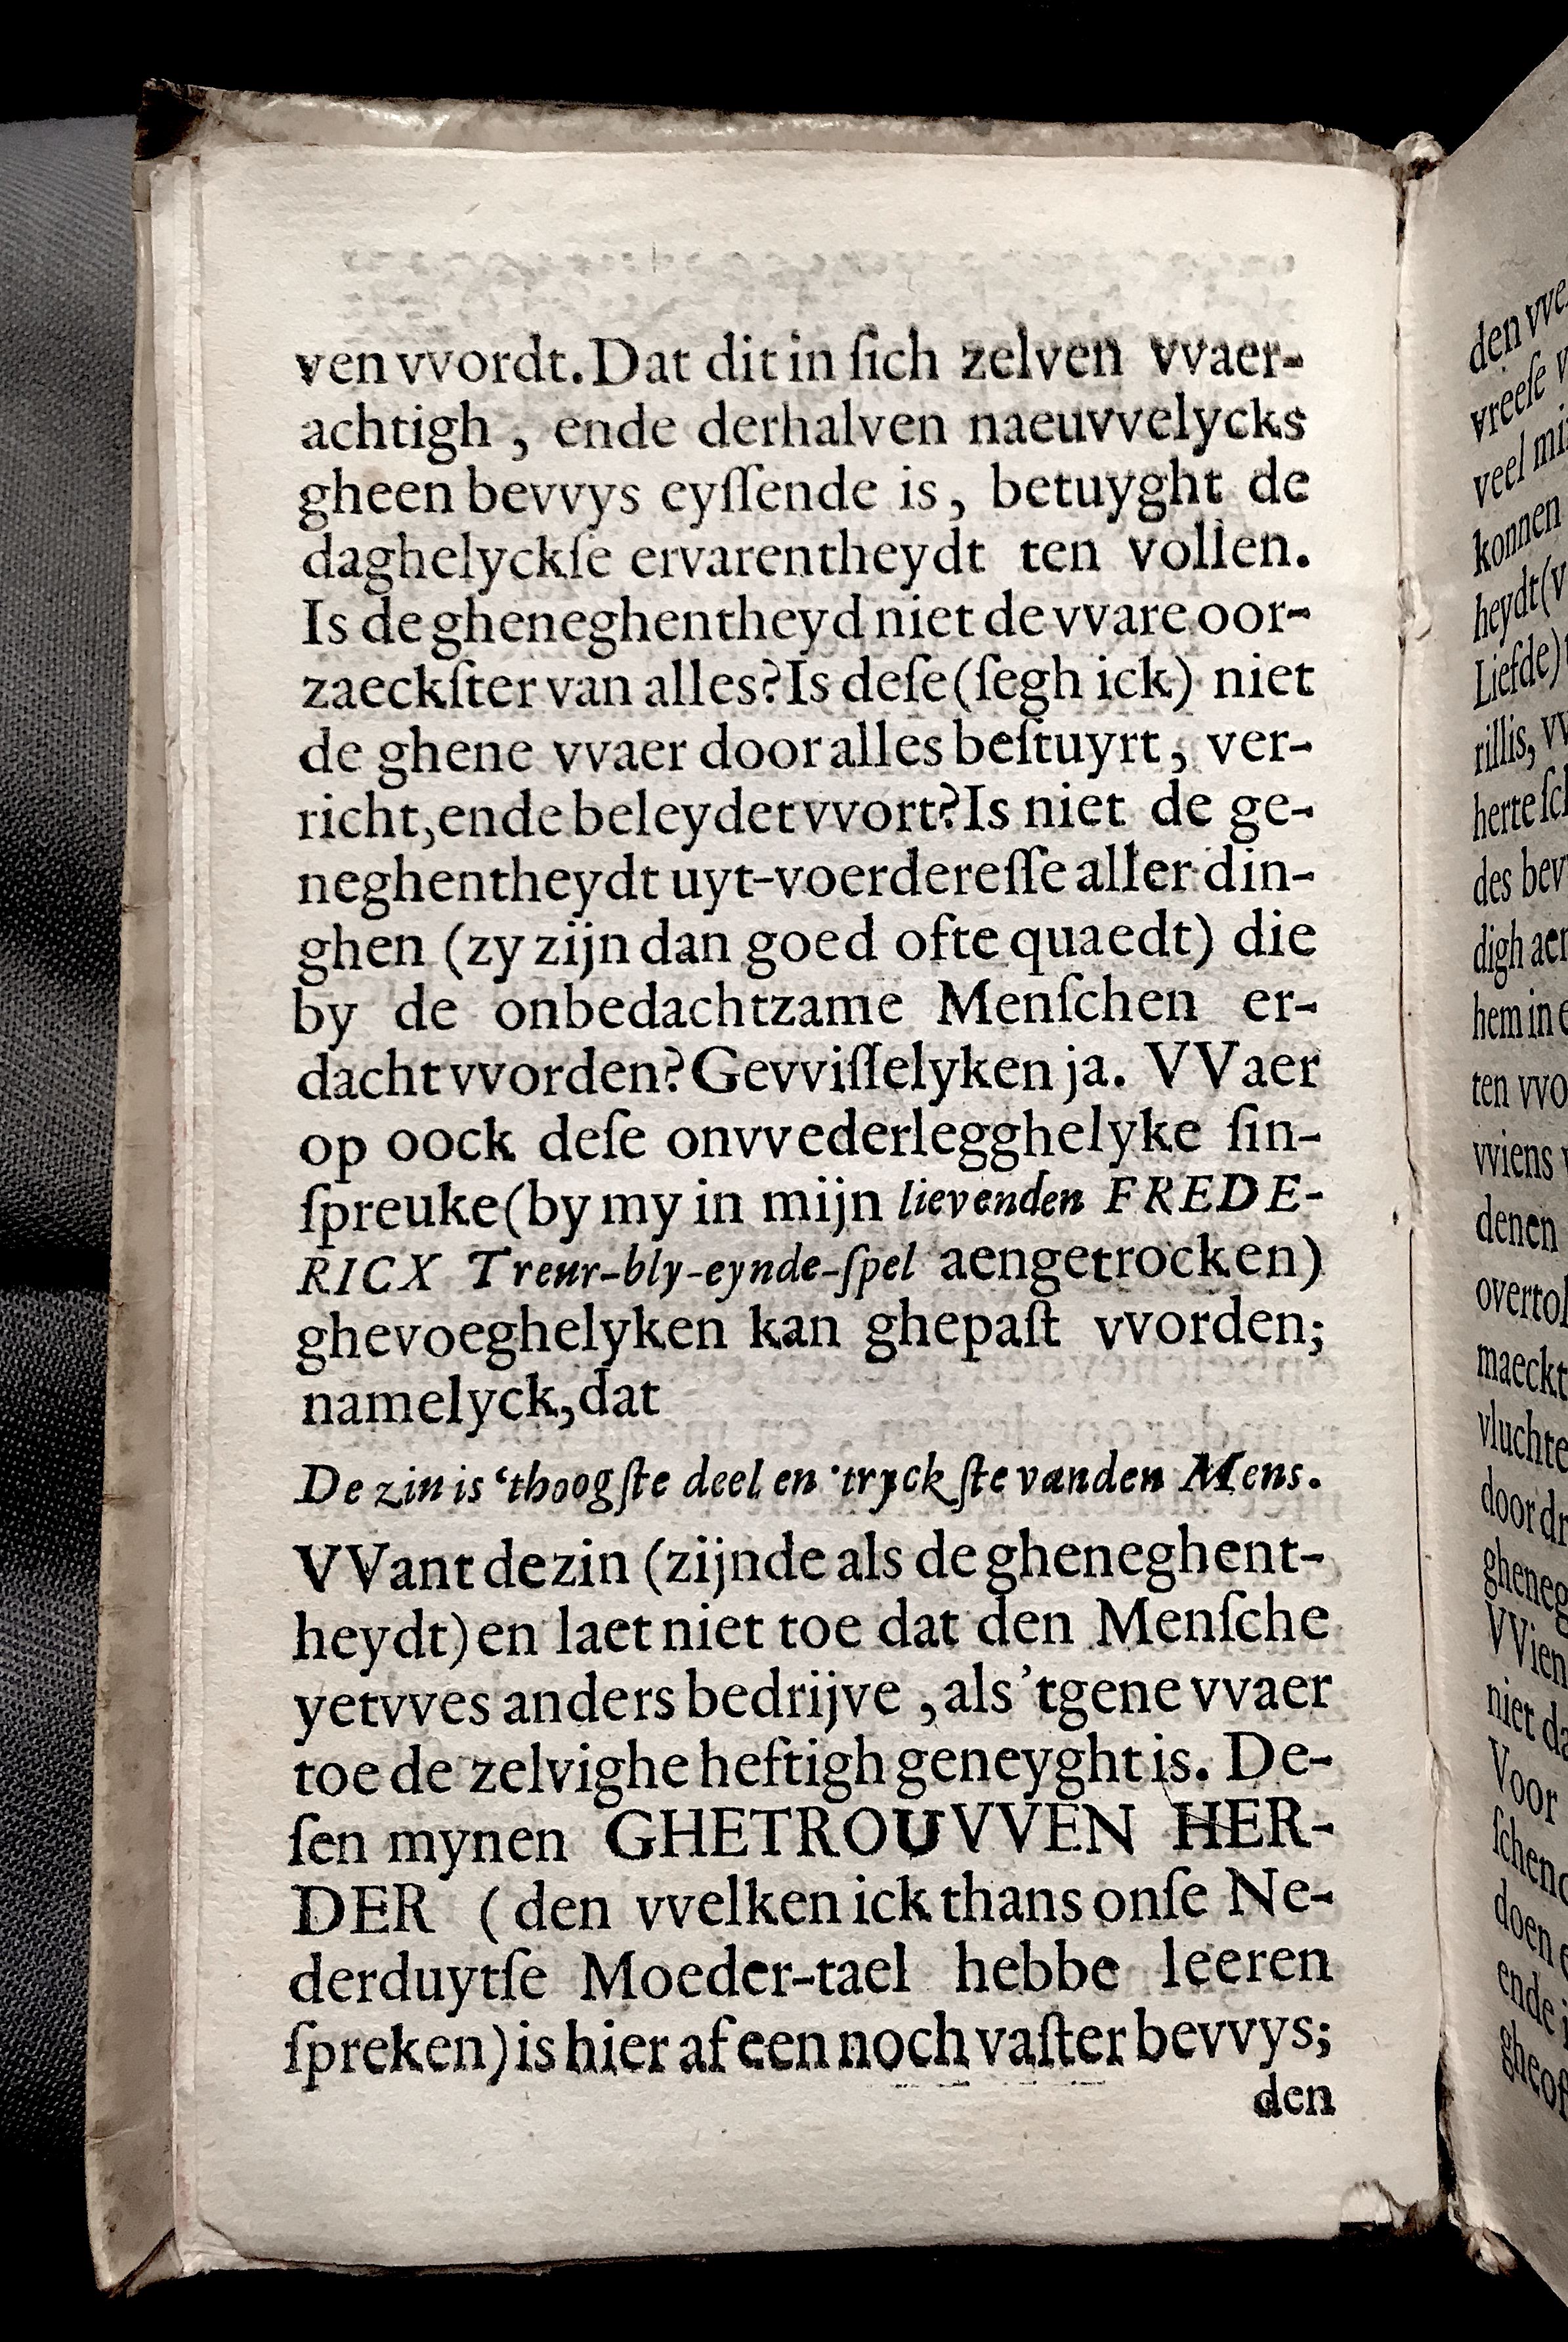 ven vvordt. Dat dit in ſich zelven vvaer-
achtigh , ende derhalven naeuvvelycks
gheen bevvys eyſſende is, betuyght de
daghelyckſe ervarentheydt ten vollen.
Is de gheneghentheyd niet de vvare oor-
zaeckſter van alles? Is deſe (ſegh ick) niet
de ghene vvaer door alles beſtuyrt, ver-
richt, ende beleydet vvort? Is niet de ge-
neghentheydt uyt-voerdereſſe aller din-
ghen (zy zijn dan goed ofte quaedt) die
by de onbedachtzame Menſchen er-
dacht vvorden? Gevviſſelyken ja. VVaer
op oock deſe onvvederlegghelyke ſin-
ſpreuke (by my in mijn lievenden FREDE-
RICX Treur-bly-eynde-ſpel aengetrocken)
ghevoeghelyken kan ghepaſt vvorden;
namelyck, dat
De zin is ‘thoogſte deel en ‘tryckſte vanden Mens.
VVant de zin (zijnde als de gheneghent-
heydt) en laet niet toe dat den Menſche
yetvves anders bedrijve , als ’tgene vvaer
toe de zelvighe heftigh geneyght is. De-
ſen mynen GHETROUVVEN HER-
DER ( den vvelken ick thans onſe Ne-
derduytſe Moeder-tael hebbe leeren
ſpreken) is hier af een noch vaſter bevvys;
den
den vve
vreeſe v
veel mi
konnen
heydt (v
Liefde)
rillis, vv
herte ſch
des bev
digh aen
hem in
ten vvo
vviens
denen
overtol
maeckt
vluchte
door dr
gheneg
VVien
niet da
Voor
ſchend
doen
ende
gheof